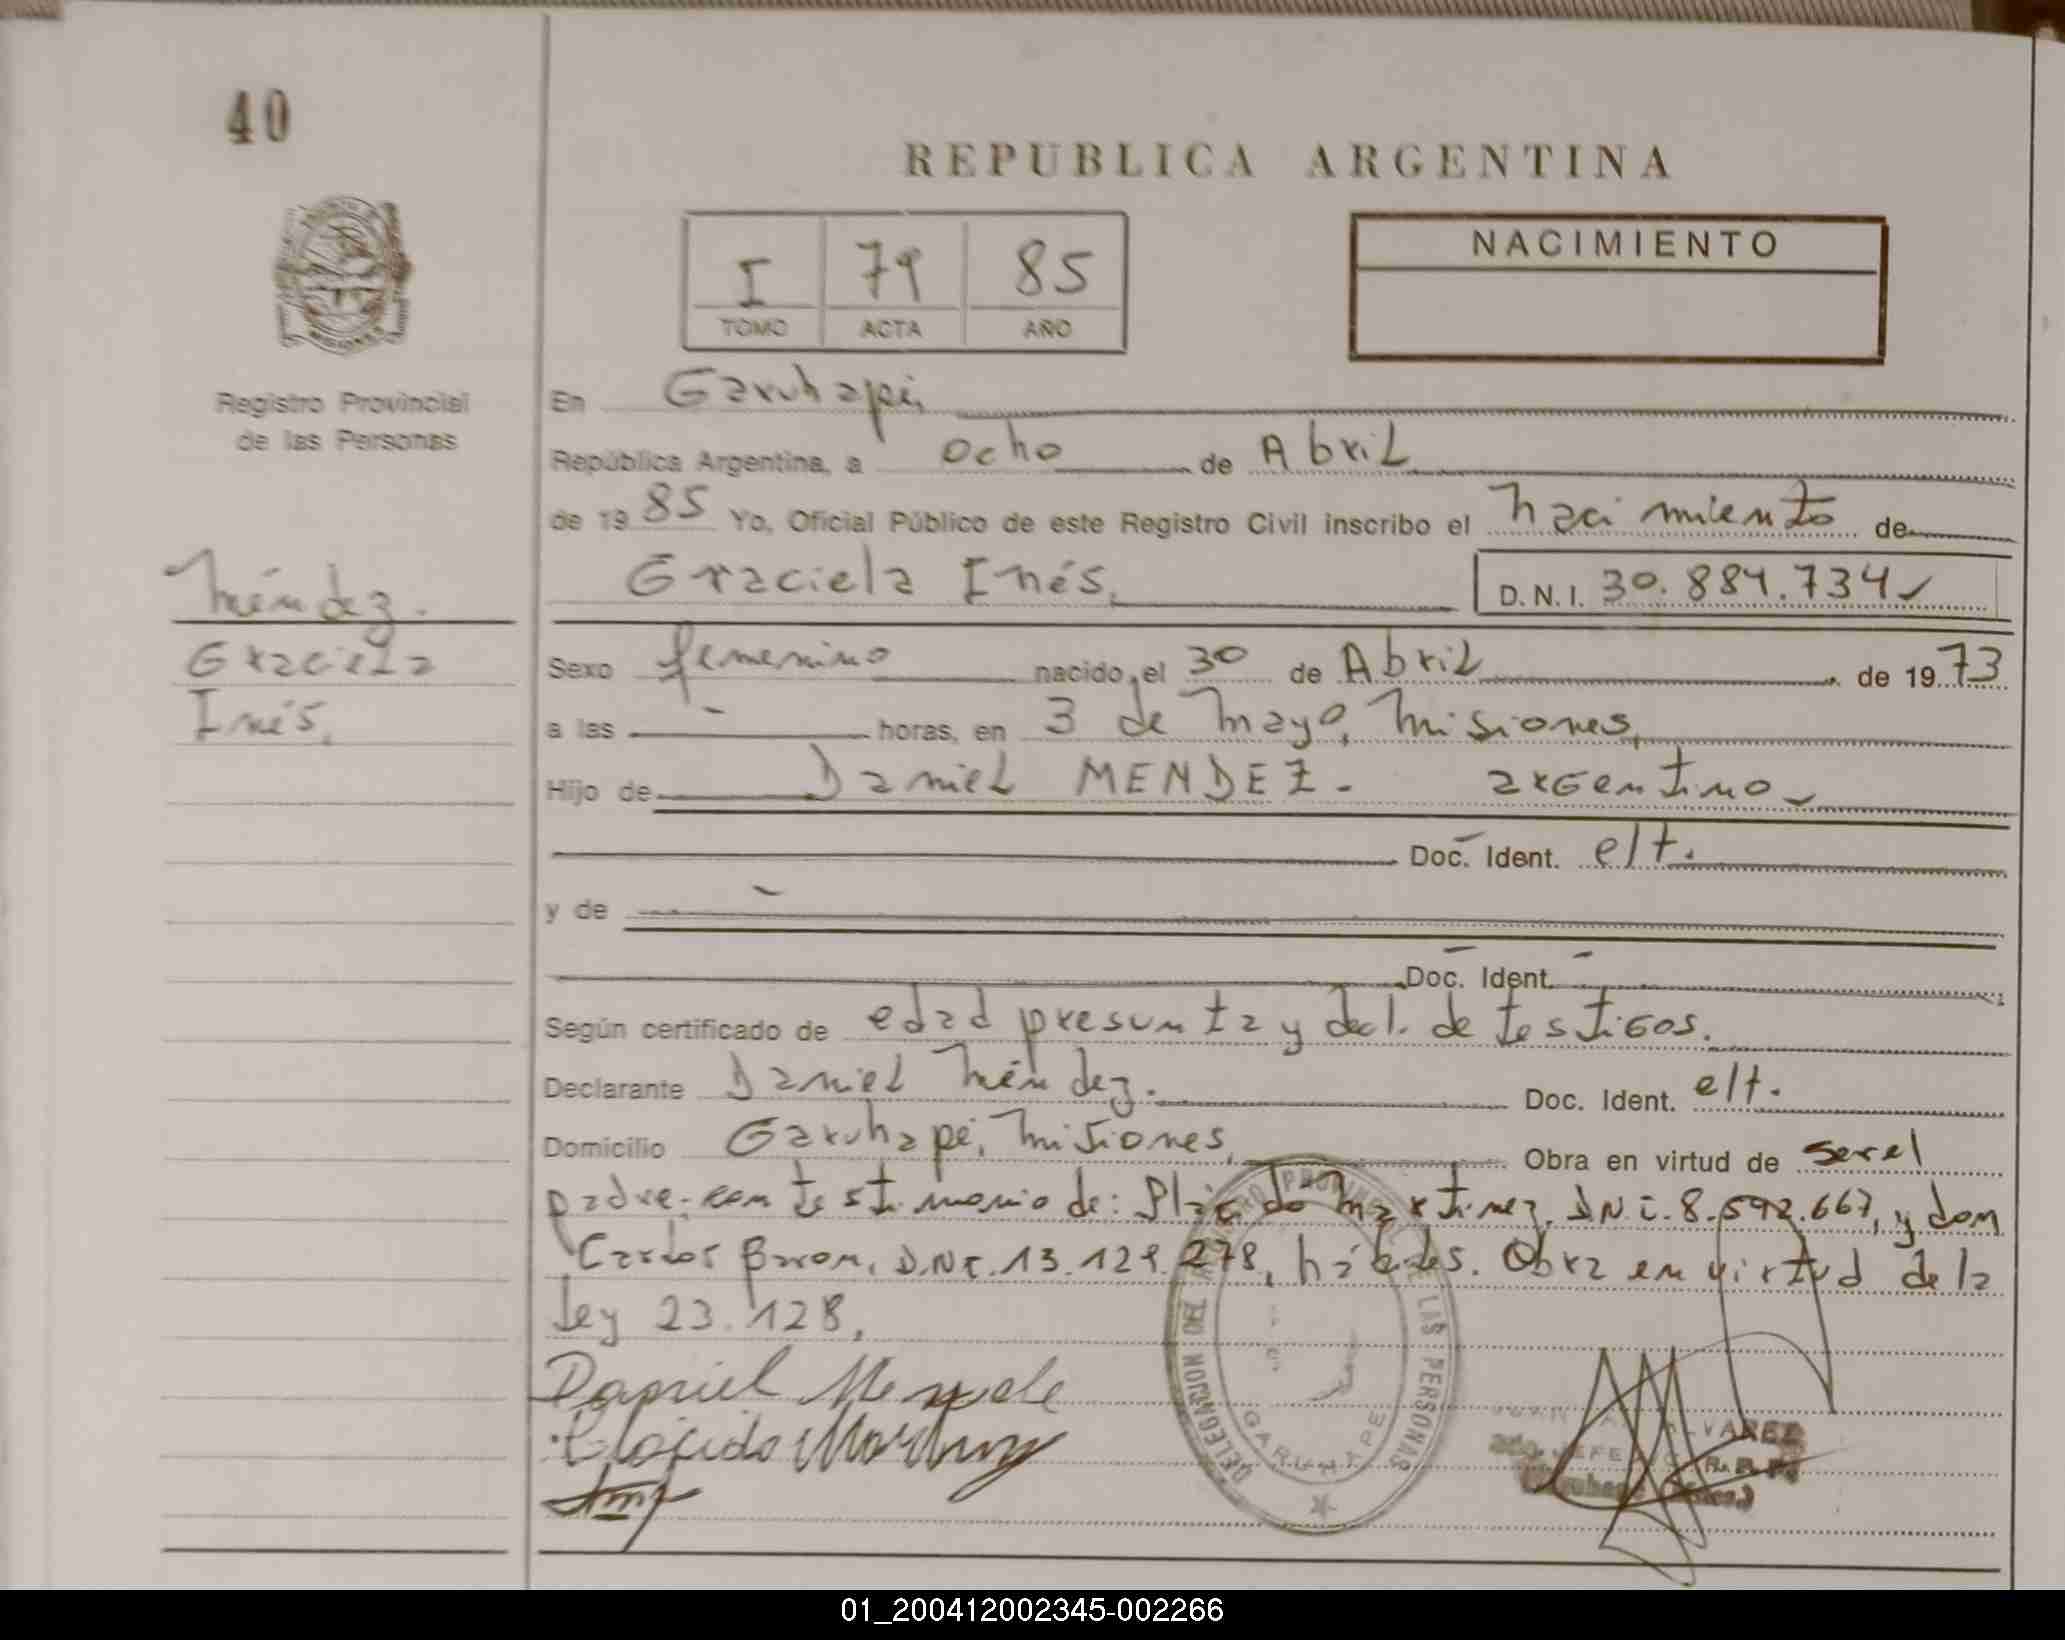 40
REPUBLICA ARGENTINA
I 79 85
TOMO ACTA AÑO
NACIMIENTO
Registro Provincial
de las Personas
En Garuhapé,
República Argentina, a ocho de Abril
de 1985 Yo, Oficial Público de este Registro Civil inscribo el nacimiento de
Graciela Inés, D.N.I. 30.884.734
Méndez.
Graciela
Inés,
Sexo femenino nacido el 30 de Abril de 1973
a las - horas, en 3 de Mayo, Misiones,
Hijo de Daniel MENDEZ - argentino
Doc. Ident. elt.
y de -
Doc. Ident. -
Según certificado de edad presunta y decl. de testigos.
Declarante Daniel Méndez. Doc. Ident. elt.
Domicilio Garuhapé, Misiones, Obra en virtud de ser el
padre; con testimonio de: Plácido Martinez, DNi. 8.592.667, y don
Carlos Baron, D.N.I. 13.129.278, hábiles. Obra en virtud de la
Ley 23.128,
Daniel Mendez
Plácido Martinez
DELEGACION DEL REGISTRO PROVINCIAL DE LAS PERSONAS
GARUHAPE
ALVAREZ
JEFE R. P. P.
Garuhape
01_200412002345-002266